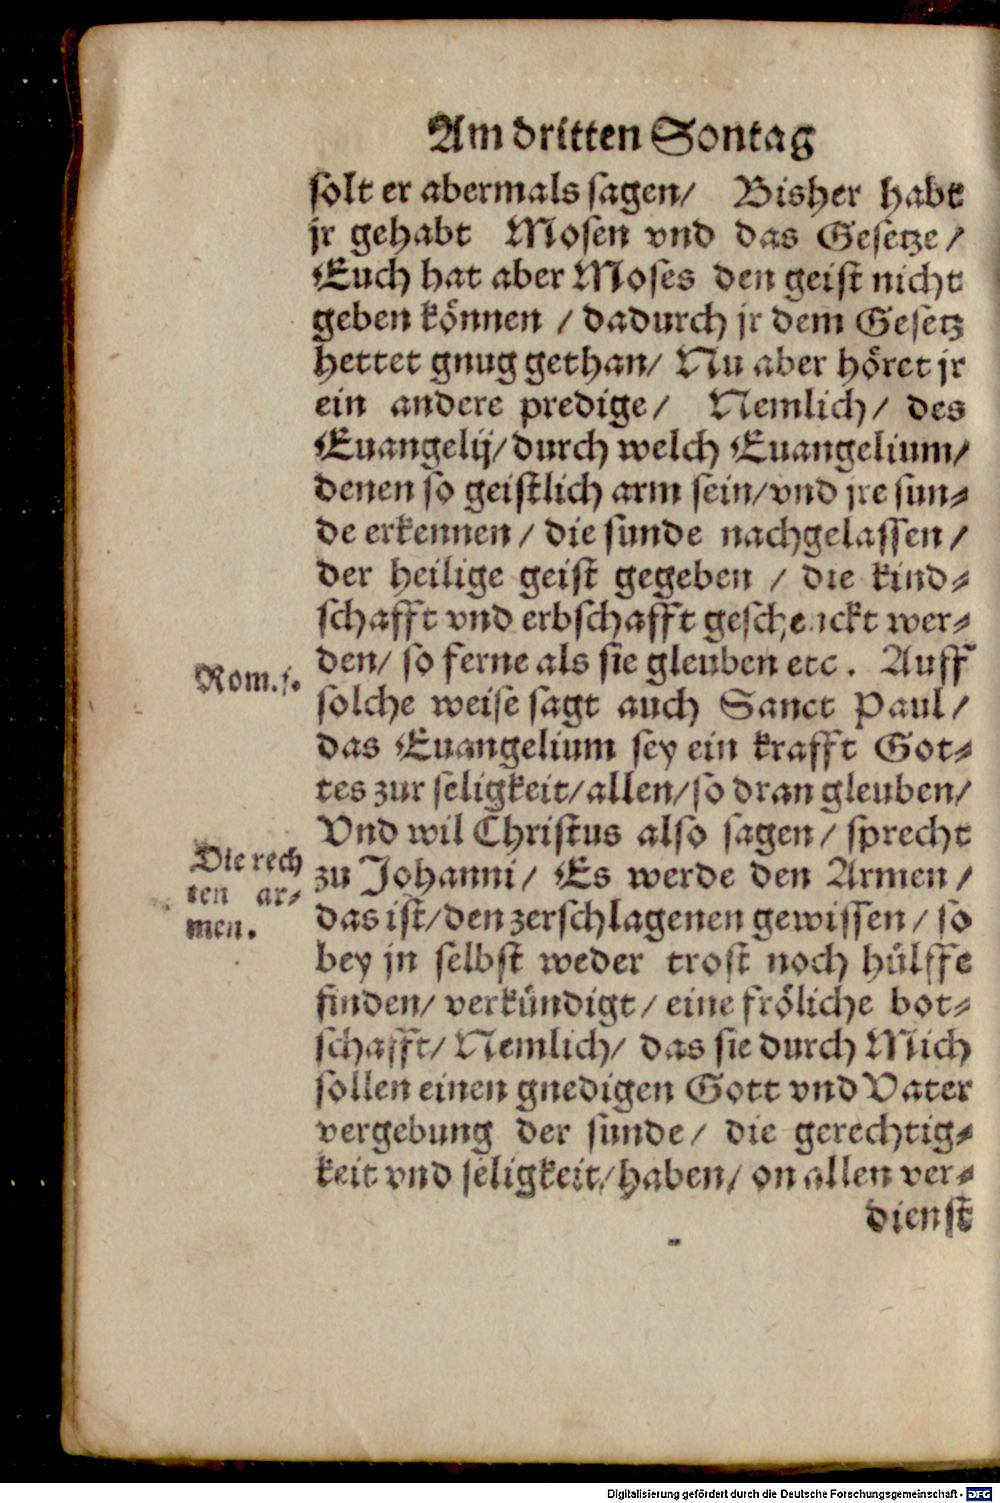 Am dritten Sontag
solt er abermals sagen/ Bisher habt
jr gehabt Mosen vnd das Gesetze/
Euch hat aber Moses den geist nicht
geben können / dadurch jr dem Gesetz
hettet gnug gethan/ Nu aber höret jr
ein andere predige/ Nemlich/ des
Euangelij/ durch welch Euangelium/
denen so geistlich arm sein/ vnd jre sun⸗
de erkennen / die sunde nachgelassen /
der heilige geist gegeben / die kind⸗
schafft vnd erbschafft geschenckt wer⸗
den/ so ferne als sie gleuben etc. Auff
Rom.
solche weise sagt auch Sanct Paul/
das Euangelium sey ein krafft Got⸗
tes zur seligkeit/ allen/ so dran gleuben/
Vnd wil Christus also sagen/ sprecht
Die rech
ten ar⸗
men.
zu Johanni/ Es werde den Armen/
das ist/ den zerschlagenen gewissen/ so
bey jn selbst weder trost noch hülffe
finden/ verkündigt/ eine fröliche bot⸗
schafft/ Nemlich/ das sie durch Mich
sollen einen gnedigen Gott vnd Vater
vergebung der sunde/ die gerechtig⸗
keit vnd seligkeit/ haben/ on allen ver⸗
dienst
Digitalisierung gefördert durch die Deutsche Forschungsgemeinschaft - DFG